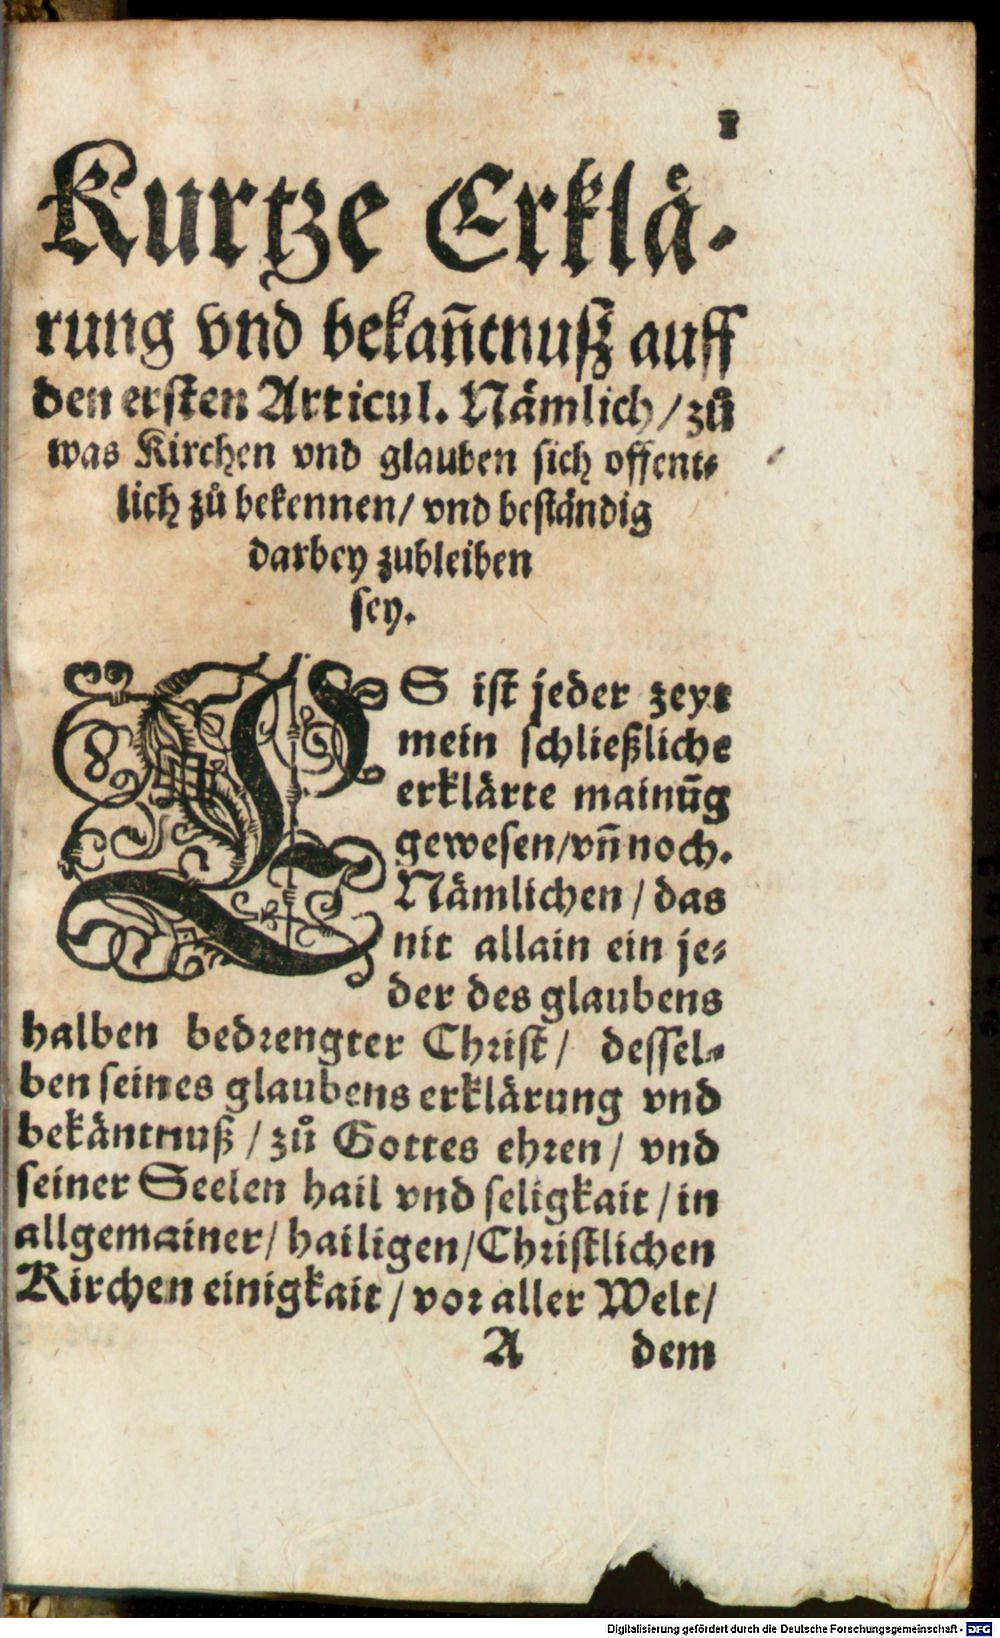 1
Kurtze Erklå-
rung vnd bekan̄tnusz auff
den ersten Articul. Nämlich / zů
was Kirchen vnd glauben sich offent-
lich zů bekennen / vnd beständig
darbey zubleiben
sey.
ES ist jeder zeyt
mein schließliche
erklärte mainūg
gewesen / vn̄ noch.
Nämlichen / das
nit allain ein je-
der des glaubens
halben bedrengter Christ / dessel-
ben seines glaubens erklärung vnd
bekäntnuß / zů Gottes ehren / vnd
seiner Seelen hail vnd seligkait / in
allgemainer / hailigen / Christlichen
Kirchen einigkait / vor aller Welt /
A dem
Digitalisierung gefördert durch die Deutsche Forschungsgemeinschaft - DFG